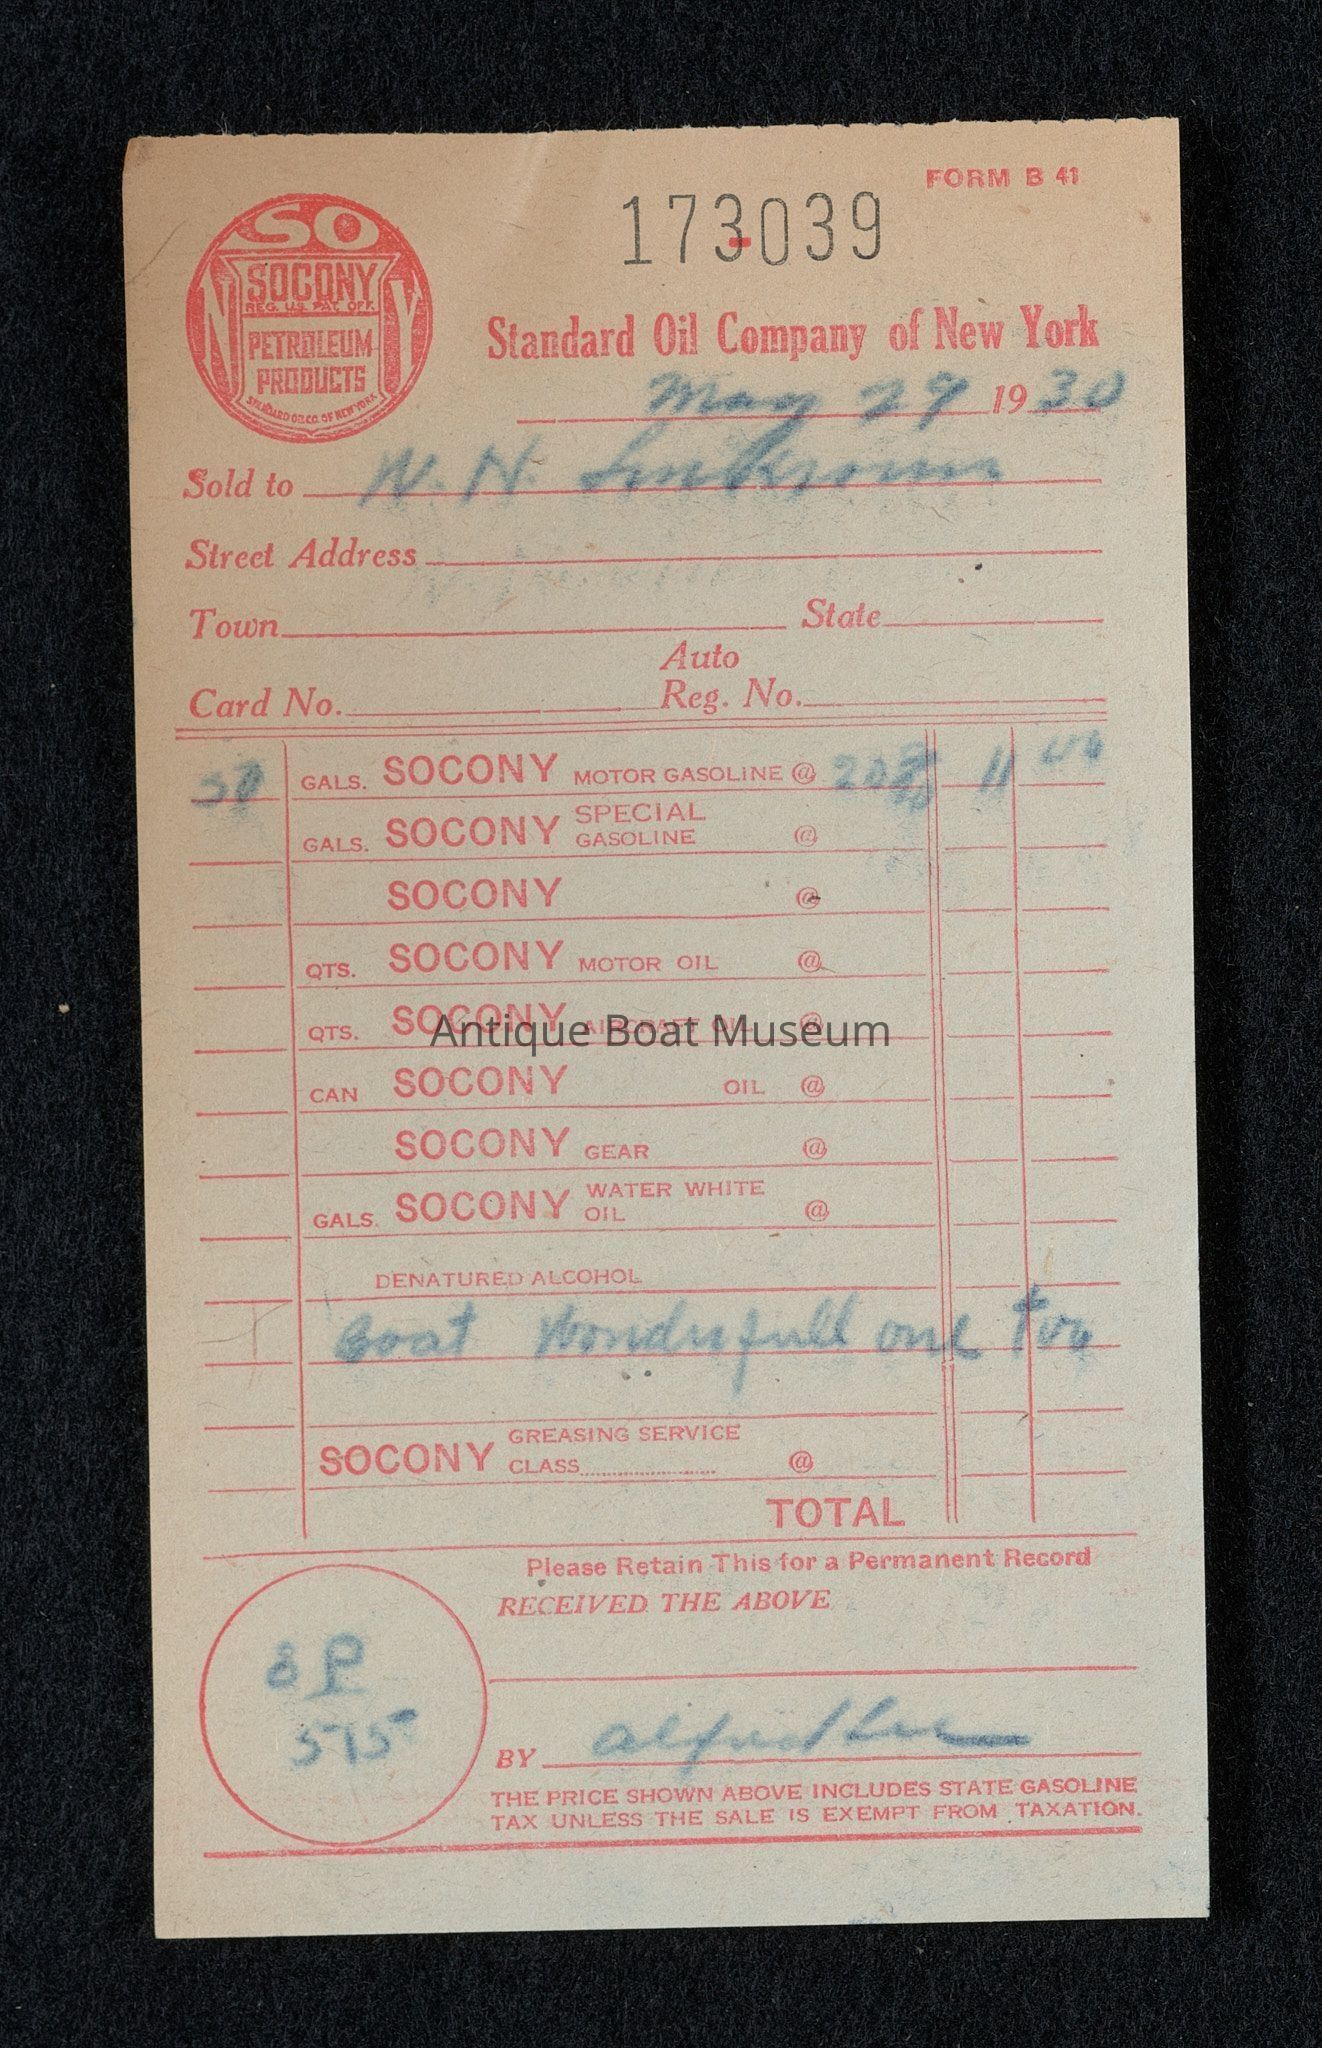 FORM B 41
173039
SO
NY
SOCONY
REG. U.S. PAT. OFF.
PETROLEUM
PRODUCTS
STANDARD OIL CO. OF NEW YORK
Standard Oil Company of New York
May 29 1930
Sold to W. H.
Street Address
Town State
Auto
Card No. Reg. No.
GALS. SOCONY MOTOR GASOLINE @ 11
GALS. SOCONY SPECIAL GASOLINE @
SOCONY @
QTS. SOCONY MOTOR OIL @
QTS. SOCONY AIRCRAFT OIL @
Antique Boat Museum
CAN SOCONY OIL @
SOCONY GEAR @
GALS. SOCONY WATER WHITE OIL @
DENATURED ALCOHOL
Boat Wonderfull one two
SOCONY GREASING SERVICE CLASS @
TOTAL
Please Retain This for a Permanent Record
RECEIVED THE ABOVE
575
BY Alfred Lee
THE PRICE SHOWN ABOVE INCLUDES STATE GASOLINE
TAX UNLESS THE SALE IS EXEMPT FROM TAXATION.